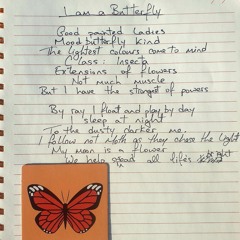 I am a Butterfly
Good painted Ladies
Mood butterfly kind
The lightest colours come to mind
Class: Insecta
Extensions of flowers
Not much muscle
But I have the strongest of powers
By ray I float and play by day
I sleep at night
To the dusty darker me.
I follow not Moth as they chase the Light
My moon is a flower
We help all life's